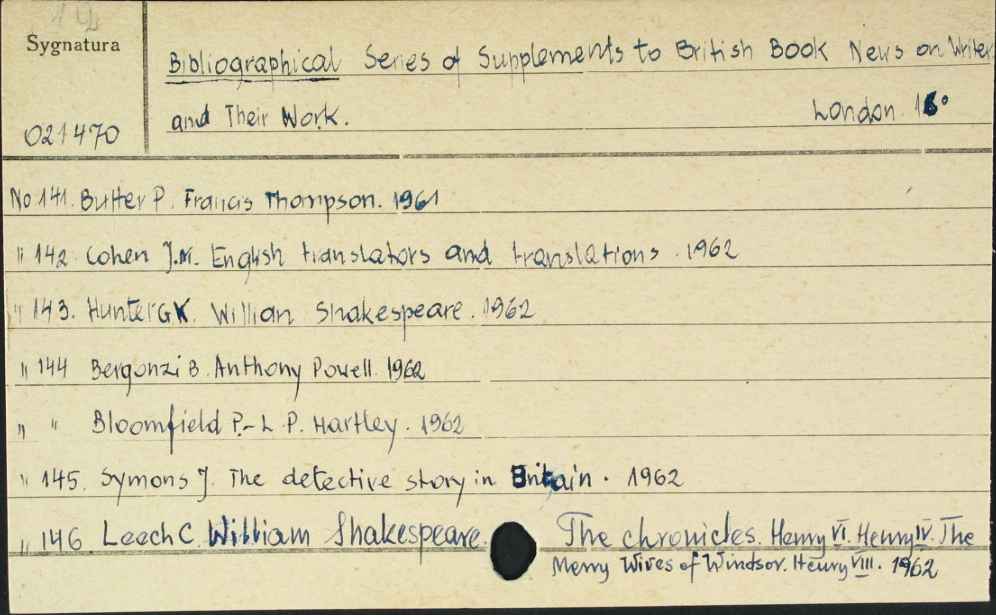 Sygnatura
Bibliographical Series of Supplements to British Book News on Writer
and Their Work. London. 16°
021470
No 141. Butter P. Francis Thompson. 1961
" 142. Cohen J.M. English translators and translations. 1962
" 143. Hunter GK. William Shakespeare. 1962
" 144 Bergonzi B. Anthony Powell. 1962
" " Bloomfield P.- L. P. Hartley. 1962
" 145. Symons J. The detective story in Britain. 1962
" 146. Leech C. William Shakespeare. The chronicles. Henry VI. Henry IV. The
Merry Wives of Windsor. Henry VIII. 1962